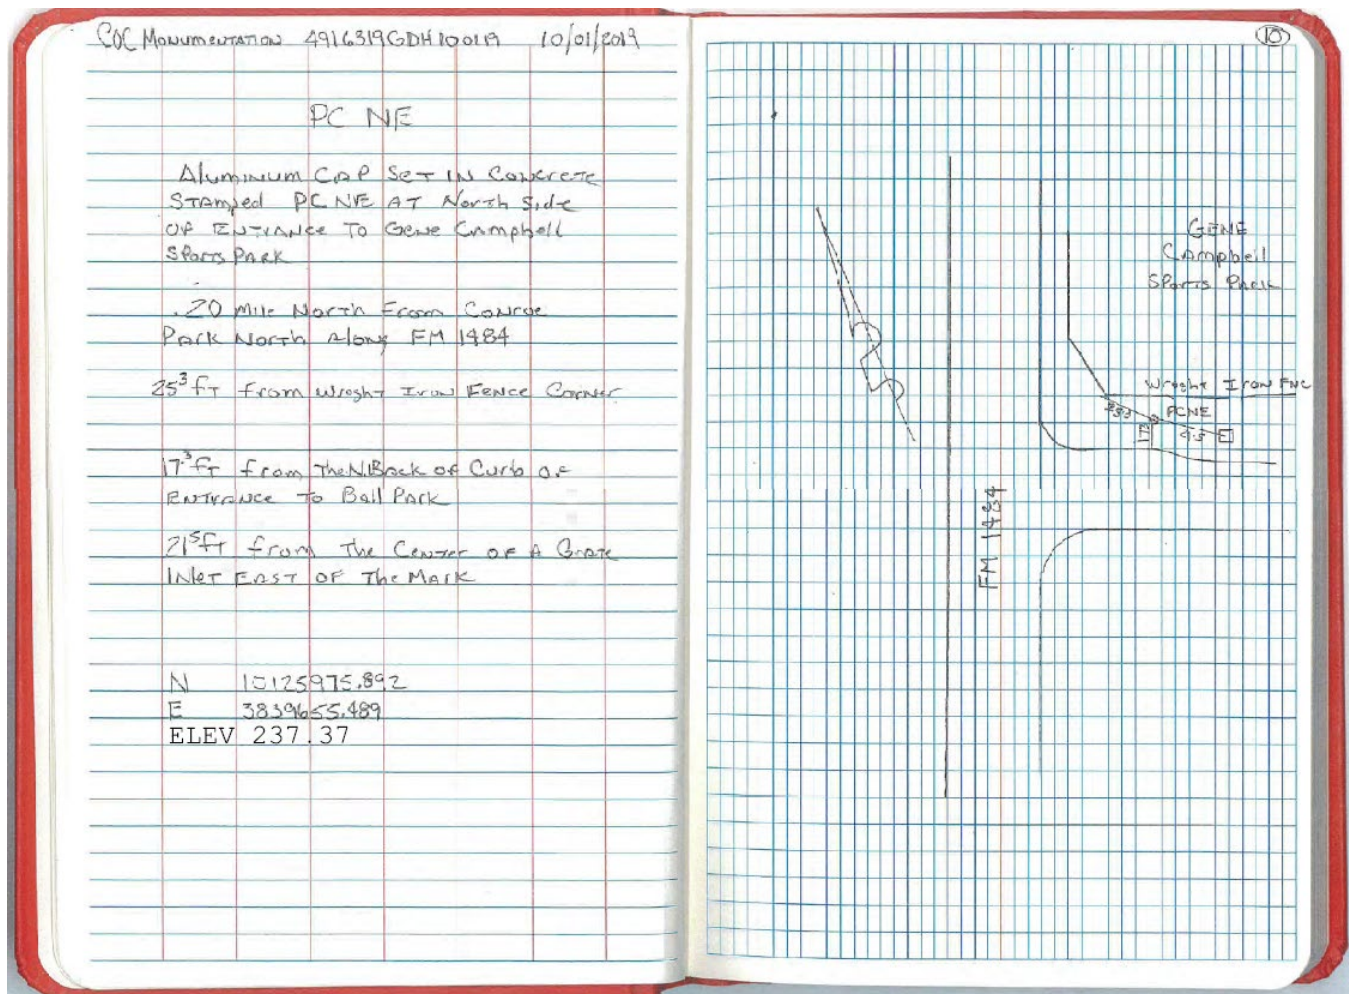 COC Monumentation 4916319GDH100119 10/01/2019
PC NE
Aluminum Cap Set IN Concrete
Stamped PC NE AT North Side
OF Entrance To Gene Campbell
Sports Park
.20 Mile North From Conroe
Park North Along FM 1484
25³ FT from Wroght Iron Fence Corner
17.³ FT from The N. Back of Curb OF
Entrance To Ball Park
21⁵ FT from The Center OF A Grate
Inlet East OF The Mark
N 10125975.892
E 3839655.489
ELEV 237.37
10
GENE
Campbell
Sports Park
Wroght Iron FNC
25.3
PCNE
17.3
FM 1484